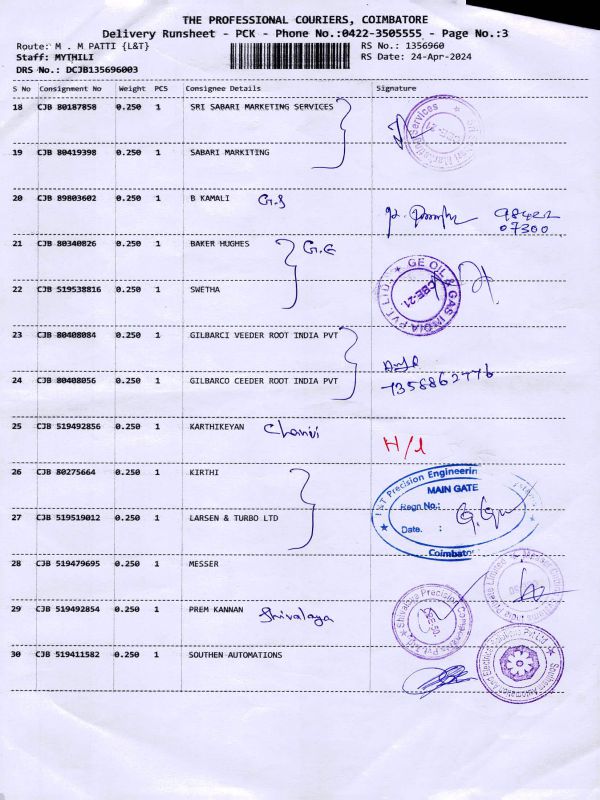 THE PROFESSIONAL COURIERS, COIMBATORE
Delivery Runsheet - PCK - Phone No.:0422-3505555 - Page No.:3
Route: M . M PATTI {L&T} RS No.: 1356960
Staff: MYTHILI RS Date: 24-Apr-2024
DRS No.: DCJB135696003
S No Consignment No Weight PCS Consignee Details Signature
18 CJB 80187858 0.250 1 SRI SABARI MARKETING SERVICES
19 CJB 80419398 0.250 1 SABARI MARKITING
20 CJB 89803602 0.250 1 B KAMALI G.S
98422
07300
21 CJB 80340826 0.250 1 BAKER HUGHES G.E
GE OIL & GAS INDIA PVT LTD.
CBE-21
22 CJB 519538816 0.250 1 SWETHA
23 CJB 80408084 0.250 1 GILBARCI VEEDER ROOT INDIA PVT
24 CJB 80408056 0.250 1 GILBARCO CEEDER ROOT INDIA PVT
7358862776
25 CJB 519492856 0.250 1 KARTHIKEYAN
H/1
26 CJB 80275664 0.250 1 KIRTHI
L&T Precision Engineering
MAIN GATE
Regn No.:
27 CJB 519519012 0.250 1 LARSEN & TURBO LTD
Date. :
28 CJB 519479695 0.250 1 MESSER
29 CJB 519492854 0.250 1 PREM KANNAN Shivalaya
Shivalaya Precision
30 CJB 519411582 0.250 1 SOUTHEN AUTOMATIONS